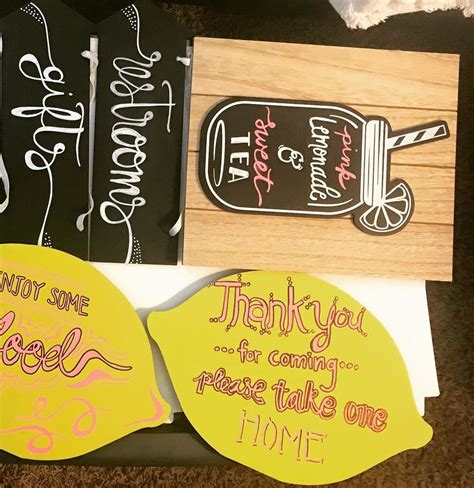 gifts
restrooms
pink
lemonade
&
sweet
TEA
ENJOY SOME
Thank you
...for coming...
please take one
HOME